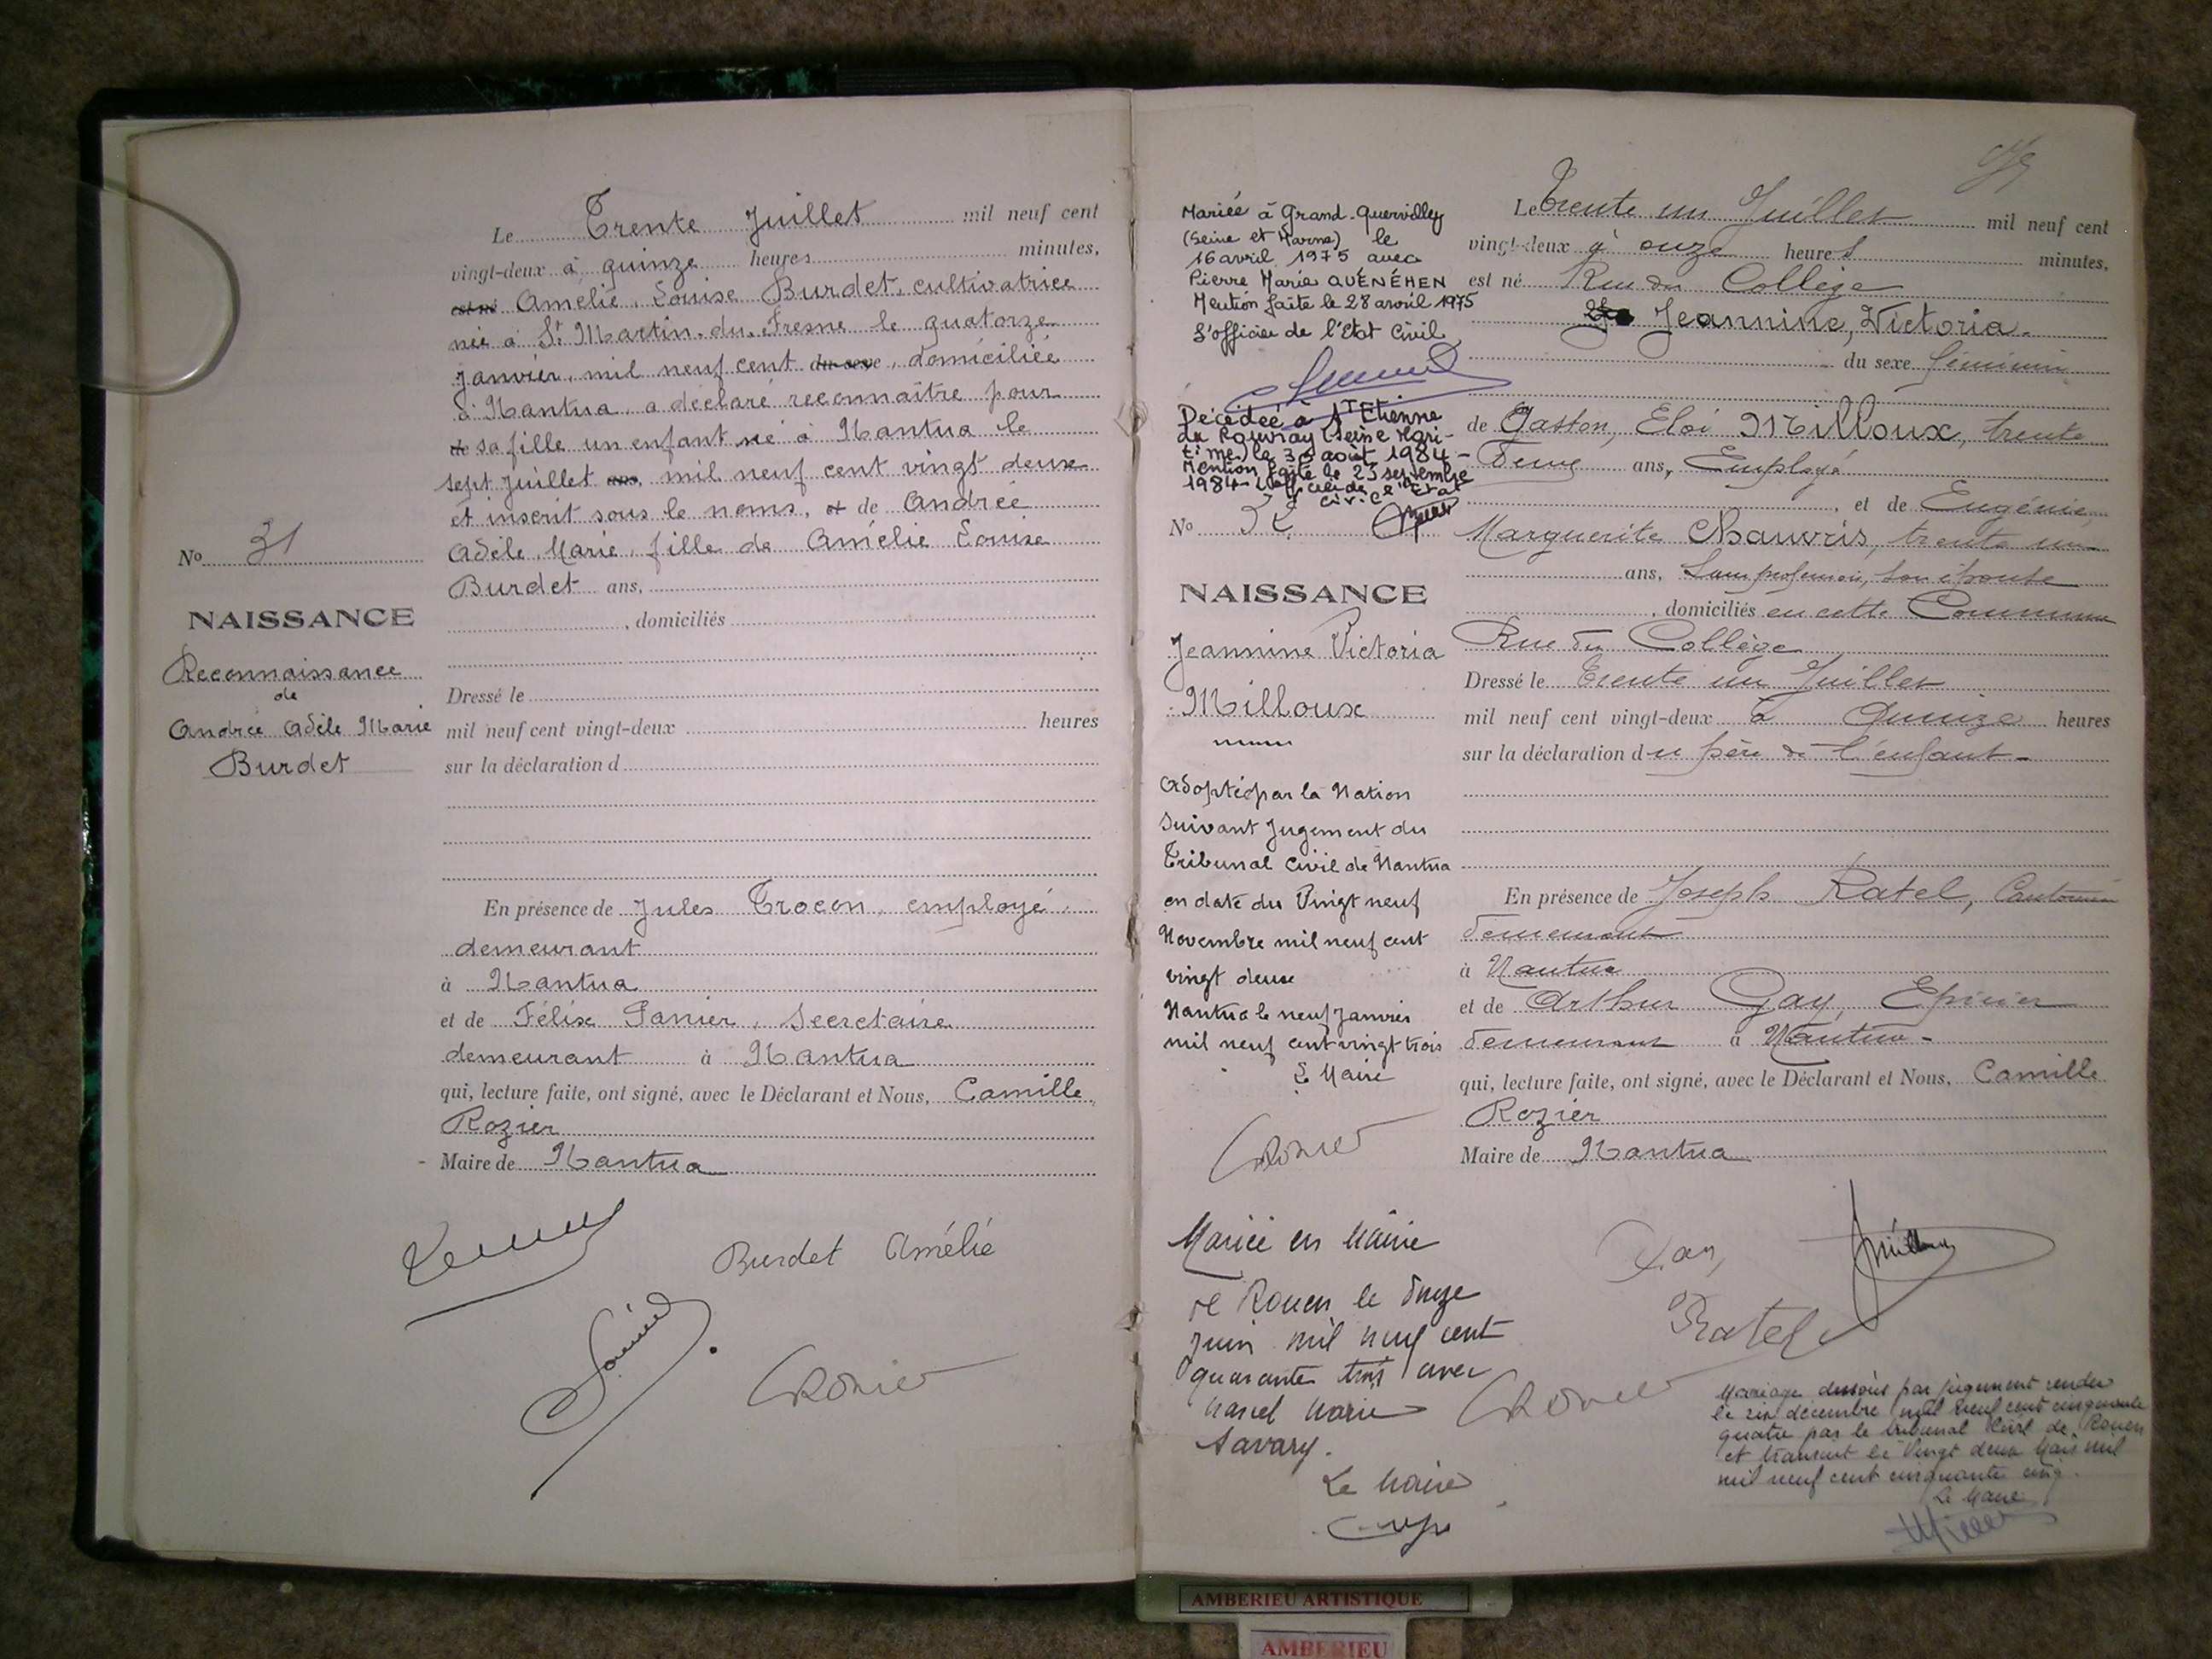 Le Trente Juillet mil neuf cent
vingt-deux à quinze heures minutes,
est né Amélie, Louise Burdet, cultivatrice
née à St Martin-du-Fresne le quatorze
janvier, mil neuf cent du sexe, domiciliée
à Nantua, a déclaré reconnaître pour
de sa fille un enfant né à Nantua le
sept juillet ans, mil neuf cent vingt deux
et inscrit sous le noms, et de Andrée
Adèle, Marie, fille de Amélie Louise
Burdet ans,
, domiciliés
Dressé le
mil neuf cent vingt-deux heures
sur la déclaration d
En présence de Jules Trocon, employé,
demeurant
à Nantua
et de Félix Panier, Secrétaire
demeurant à Nantua
qui, lecture faite, ont signé, avec le Déclarant et Nous, Camille
Rozier
- Maire de Nantua
Burdet Amélie
CRozier
No 31
NAISSANCE
Reconnaissance
de
Andrée Adèle Marie
Burdet
Mariée à Grand-Quervilley
(Seine et Marne) le
16 avril 1975 avec
Pierre Marie QUÉNÉHEN
Mention faite le 28 avril 1975
L'officier de l'Etat Civil
Décédée à St Etienne
du Rouvray (Seine Mari-
time) le 30 août 1984-
Mention faite le 25 septembre
1984- L'officier de l'Etat
civil
No 32
NAISSANCE
Jeannine Victoria
Milloux
Adoptée par la Nation
suivant Jugement du
Tribunal Civil de Nantua
en date du Vingt neuf
Novembre mil neuf cent
vingt deux
Nantua le neuf Janvier
mil neuf cent vingt trois
Le Maire
CRozier
Mariée en Mairie
de Rouen le onze
juin mil neuf cent
quarante trois avec
Marcel Marie
Savary.
Le Maire
Le Trente un Juillet mil neuf cent
vingt-deux à onze heures minutes,
est né Rue du Collège
Jeannine, Victoria
du sexe féminin
de Gaston, Eloi Milloux, trente
deux ans, Employé
, et de Eugénie,
Marguerite Chauvris, trente un
ans, Sans profession, son épouse
, domiciliés en cette Commune
Rue du Collège
Dressé le Trente un Juillet
mil neuf cent vingt-deux à Quinze heures
sur la déclaration du père de l'enfant-
En présence de Joseph Ratel, Cantonnier
demeurant
à Nantua
et de Arthur Gay, Epicier
demeurant à Nantua-
qui, lecture faite, ont signé, avec le Déclarant et Nous, Camille
Rozier
Maire de Nantua
Gay
Milloux
Ratel
CRozier
Mariage dissous par jugement rendu
le six décembre mil neuf cent cinquante
quatre par le tribunal Civil de Rouen
et transcrit le Vingt deux Mars mil
mil neuf cent cinquante cinq.
Le Maire
AMBERIEU ARTISTIQUE
AMBERIEU